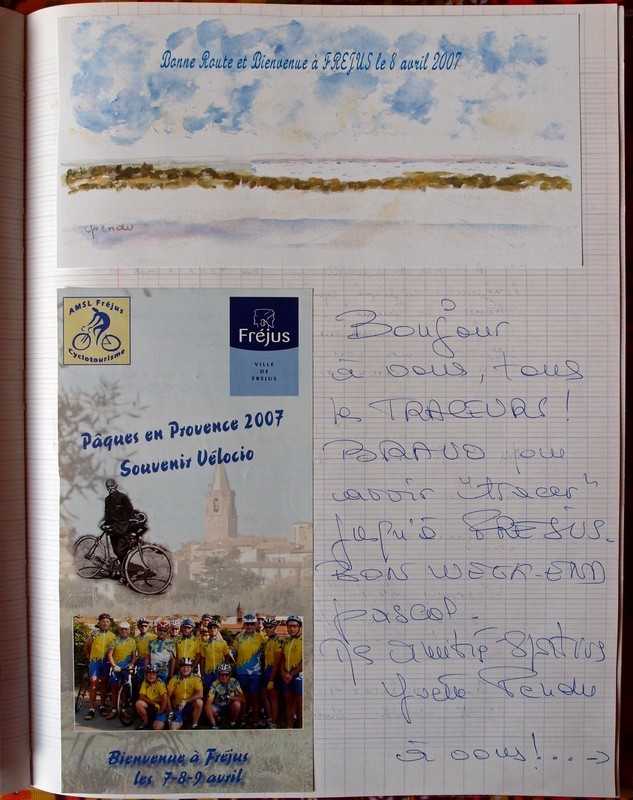 Bonne Route et Bienvenue à FREJUS le 8 avril 2007
AMSL Fréjus
Cyclotourisme
Fréjus
VILLE
DE
FREJUS
Pâques en Provence 2007
Souvenir Vélocio
Bienvenue à Fréjus
les 7-8-9 avril
Bonjour
à vous, tous
les TRACEURS !
BRAVO pour
avoir "tracer"
jusqu'à FREJUS.
BON WEEK-END
pascal.
amitié Sportives
Yvette Pendu
à vous!...→